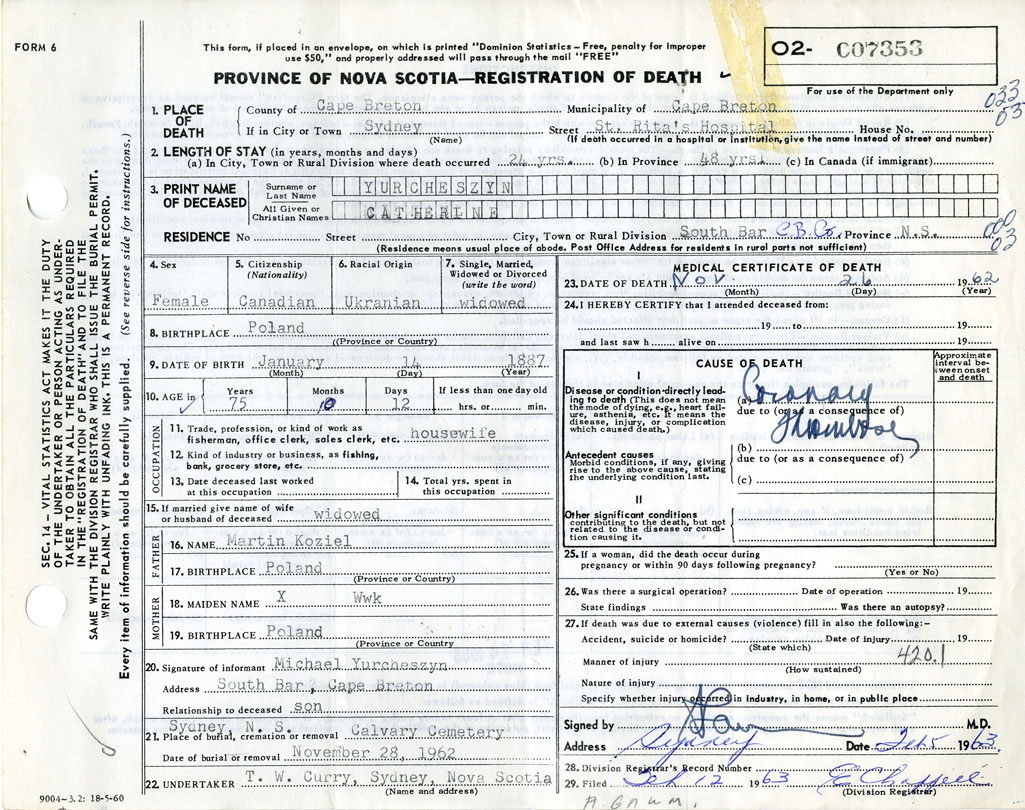 FORM 6
This form, if placed in an envelope, on which is printed "Dominion Statistics – Free, penalty for improper
use $50," and properly addressed will pass through the mail "FREE"
PROVINCE OF NOVA SCOTIA—REGISTRATION OF DEATH
02- C07353
For use of the Department only
033
03
1. PLACE OF DEATH
County of Cape Breton Municipality of Cape Breton
If in City or Town Sydney Street St. Rita's Hospital House No.
(Name) (If death occurred in a hospital or institution, give the name instead of street and number)
2. LENGTH OF STAY (in years, months and days)
(a) In City, Town or Rural Division where death occurred 24 yrs. (b) In Province 48 yrs. (c) In Canada (if immigrant)
3. PRINT NAME OF DECEASED
Surname or Last Name YURCHESZYN
All Given or Christian Names CATHERINE
RESIDENCE No Street City, Town or Rural Division South Bar C.B.Co. Province N.S.
000
03
(Residence means usual place of abode. Post Office Address for residents in rural parts not sufficient)
4. Sex
Female
5. Citizenship
(Nationality)
Canadian
6. Racial Origin
Ukranian
7. Single, Married,
Widowed or Divorced
(write the word)
widowed
8. BIRTHPLACE Poland
(Province or Country)
9. DATE OF BIRTH January 14 1887
(Month) (Day) (Year)
10. AGE in Years 75 Months 10 Days 12 If less than one day old hrs. or min.
OCCUPATION
11. Trade, profession, or kind of work as
fisherman, office clerk, sales clerk, etc. housewife
12. Kind of industry or business, as fishing,
bank, grocery store, etc.
13. Date deceased last worked
at this occupation
14. Total yrs. spent in
this occupation
15. If married give name of wife
or husband of deceased widowed
FATHER
16. NAME Martin Koziel
17. BIRTHPLACE Poland
(Province or Country)
MOTHER
18. MAIDEN NAME X Wwk
19. BIRTHPLACE Poland
(Province or Country)
20. Signature of informant Michael Yurcheszyn
Address South Bar, Cape Breton
Relationship to deceased son
Sydney, N. S. Calvary Cemetery
21. Place of burial, cremation or removal
Date of burial or removal November 28, 1962
22. UNDERTAKER T. W. Curry, Sydney, Nova Scotia
(Name and address)
MEDICAL CERTIFICATE OF DEATH
23. DATE OF DEATH Nov 26 1962
(Month) (Day) (Year)
24. I HEREBY CERTIFY that I attended deceased from:
19 to 19
and last saw h alive on 19
CAUSE OF DEATH
Approximate
interval between
onset
and death
I
Disease or condition directly leading
to death (This does not mean
the mode of dying, e.g., heart failure,
asthenia, etc. It means the
disease, injury, or complication
which caused death.)
(a) Coronary
due to (or as a consequence of)
Thrombosis
(b)
due to (or as a consequence of)
(c)
Antecedent causes
Morbid conditions, if any, giving
rise to the above cause, stating
the underlying condition last.
II
Other significant conditions
contributing to the death, but not
related to the disease or condition
causing it.
25. If a woman, did the death occur during
pregnancy or within 90 days following pregnancy?
(Yes or No)
26. Was there a surgical operation? Date of operation 19
State findings Was there an autopsy?
27. If death was due to external causes (violence) fill in also the following:–
Accident, suicide or homicide? Date of injury 19
(State which)
420.1
Manner of injury
(How sustained)
Nature of injury
Specify whether injury occurred in industry, in home, or in public place
Signed by M.D.
Address Sydney Date Feb 5 1963
28. Division Registrar's Record Number
29. Filed Feb 12 1963
(Division Registrar)
SEC. 14 – VITAL STATISTICS ACT MAKES IT THE DUTY
OF THE UNDERTAKER OR PERSON ACTING AS UNDER-
TAKER TO OBTAIN ALL THE PARTICULARS REQUIRED
IN THE "REGISTRATION OF DEATH" AND TO FILE THE
SAME WITH THE DIVISION REGISTRAR WHO SHALL ISSUE THE BURIAL PERMIT.
WRITE PLAINLY WITH UNFADING INK. THIS IS A PERMANENT RECORD.
Every item of information should be carefully supplied. (See reverse side for instructions.)
9004-3.2: 18-5-60